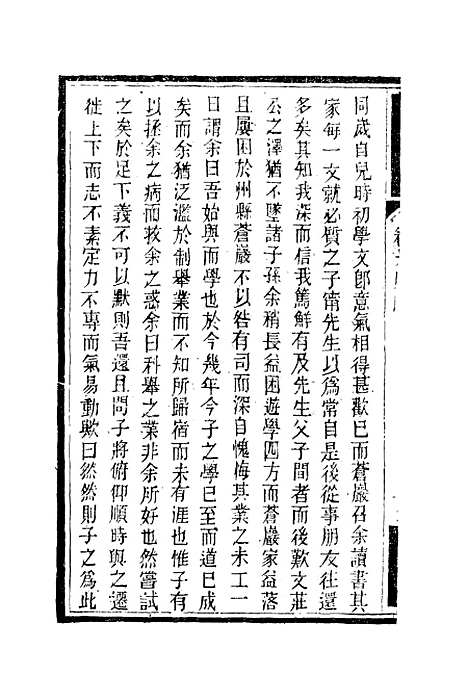 同歲自兒時初學文卽意氣相得甚歡已而蒼巖召余讀書其
家每一文就必質之子甯先生以爲常自是後從事朋友往還
多矣其知我深而信我篤鮮有及先生父子間者而後歎文莊
公之澤猶不墜諸子孫余稍長益困遊學四方而蒼巖家益落
且屢困於州縣蒼巖不以咎有司而深自愧悔其業之未工一
日謂余曰吾始與而學也於今幾年今子之學已至而道已成
矣而余猶泛濫於制舉業而不知所歸宿而未有涯也惟子有
以拯余之病而救余之惑余曰科舉之業非余所好也然嘗試
之矣於足下義不可以默則吾還且問子將俯仰順時與之遷
徙上下而志不素定力不專而氣易動歟曰然然則子之爲此